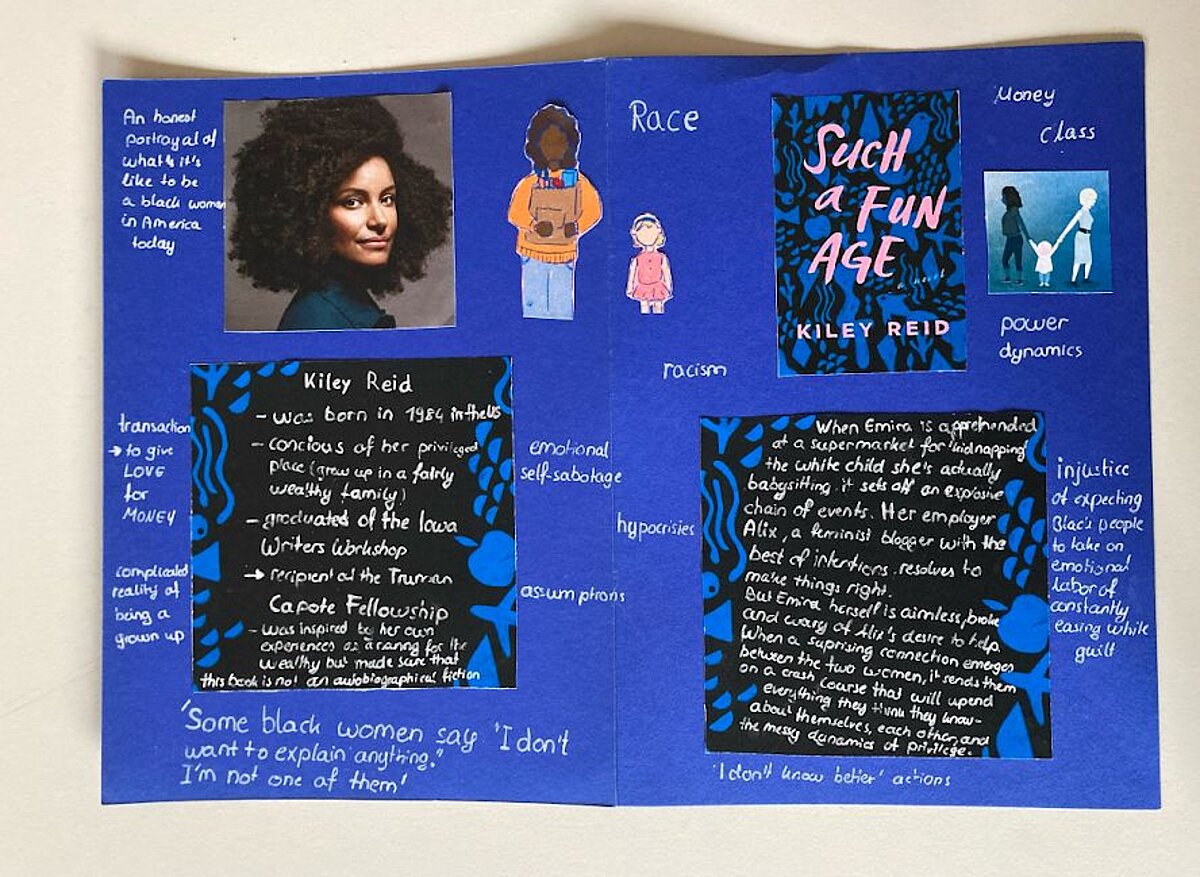 An honest
portrayal of
what's it's
like to be
a black women
in America
today
Race
SUCH
a FUN
AGE
a novel
KILEY REID
Money
class
power
dynamics
racism
Kiley Reid
- was born in 1984 in the US
- concious of her privileged
place (grew up in a fairly
wealthy family)
- graduated of the Iowa
Writers Workshop
→ recipient of the Truman
Capote Fellowship
- was inspired by her own
experiences as a caring for the
wealthy but made sure that
this book is not an autobiographical fiction
transaction
→ to give
LOVE
for
MONEY
complicated
reality of
being a
grown up
emotional
self-sabotage
hypocrisies
assumptions
When Emira is apprehended
at a supermarket for 'kidnapping'
the white child she's actually
babysitting, it sets off an explosive
chain of events. Her employer
Alix, a feminist blogger with the
best of intentions, resolves to
make things right.
But Emira herself is aimless, broke
and wary of Alix's desire to help.
When a suprising connection emerges
between the two women, it sends them
on a crash course that will upend
everything they think they know-
about themselves, each other, and
the messy dynamics of privilege.
injustice
of expecting
Black people
to take on
emotional
labor of
constantly
easing white
guilt
'Some black women say 'I don't
want to explain anything."
I'm not one of them'
'I don't know better' actions